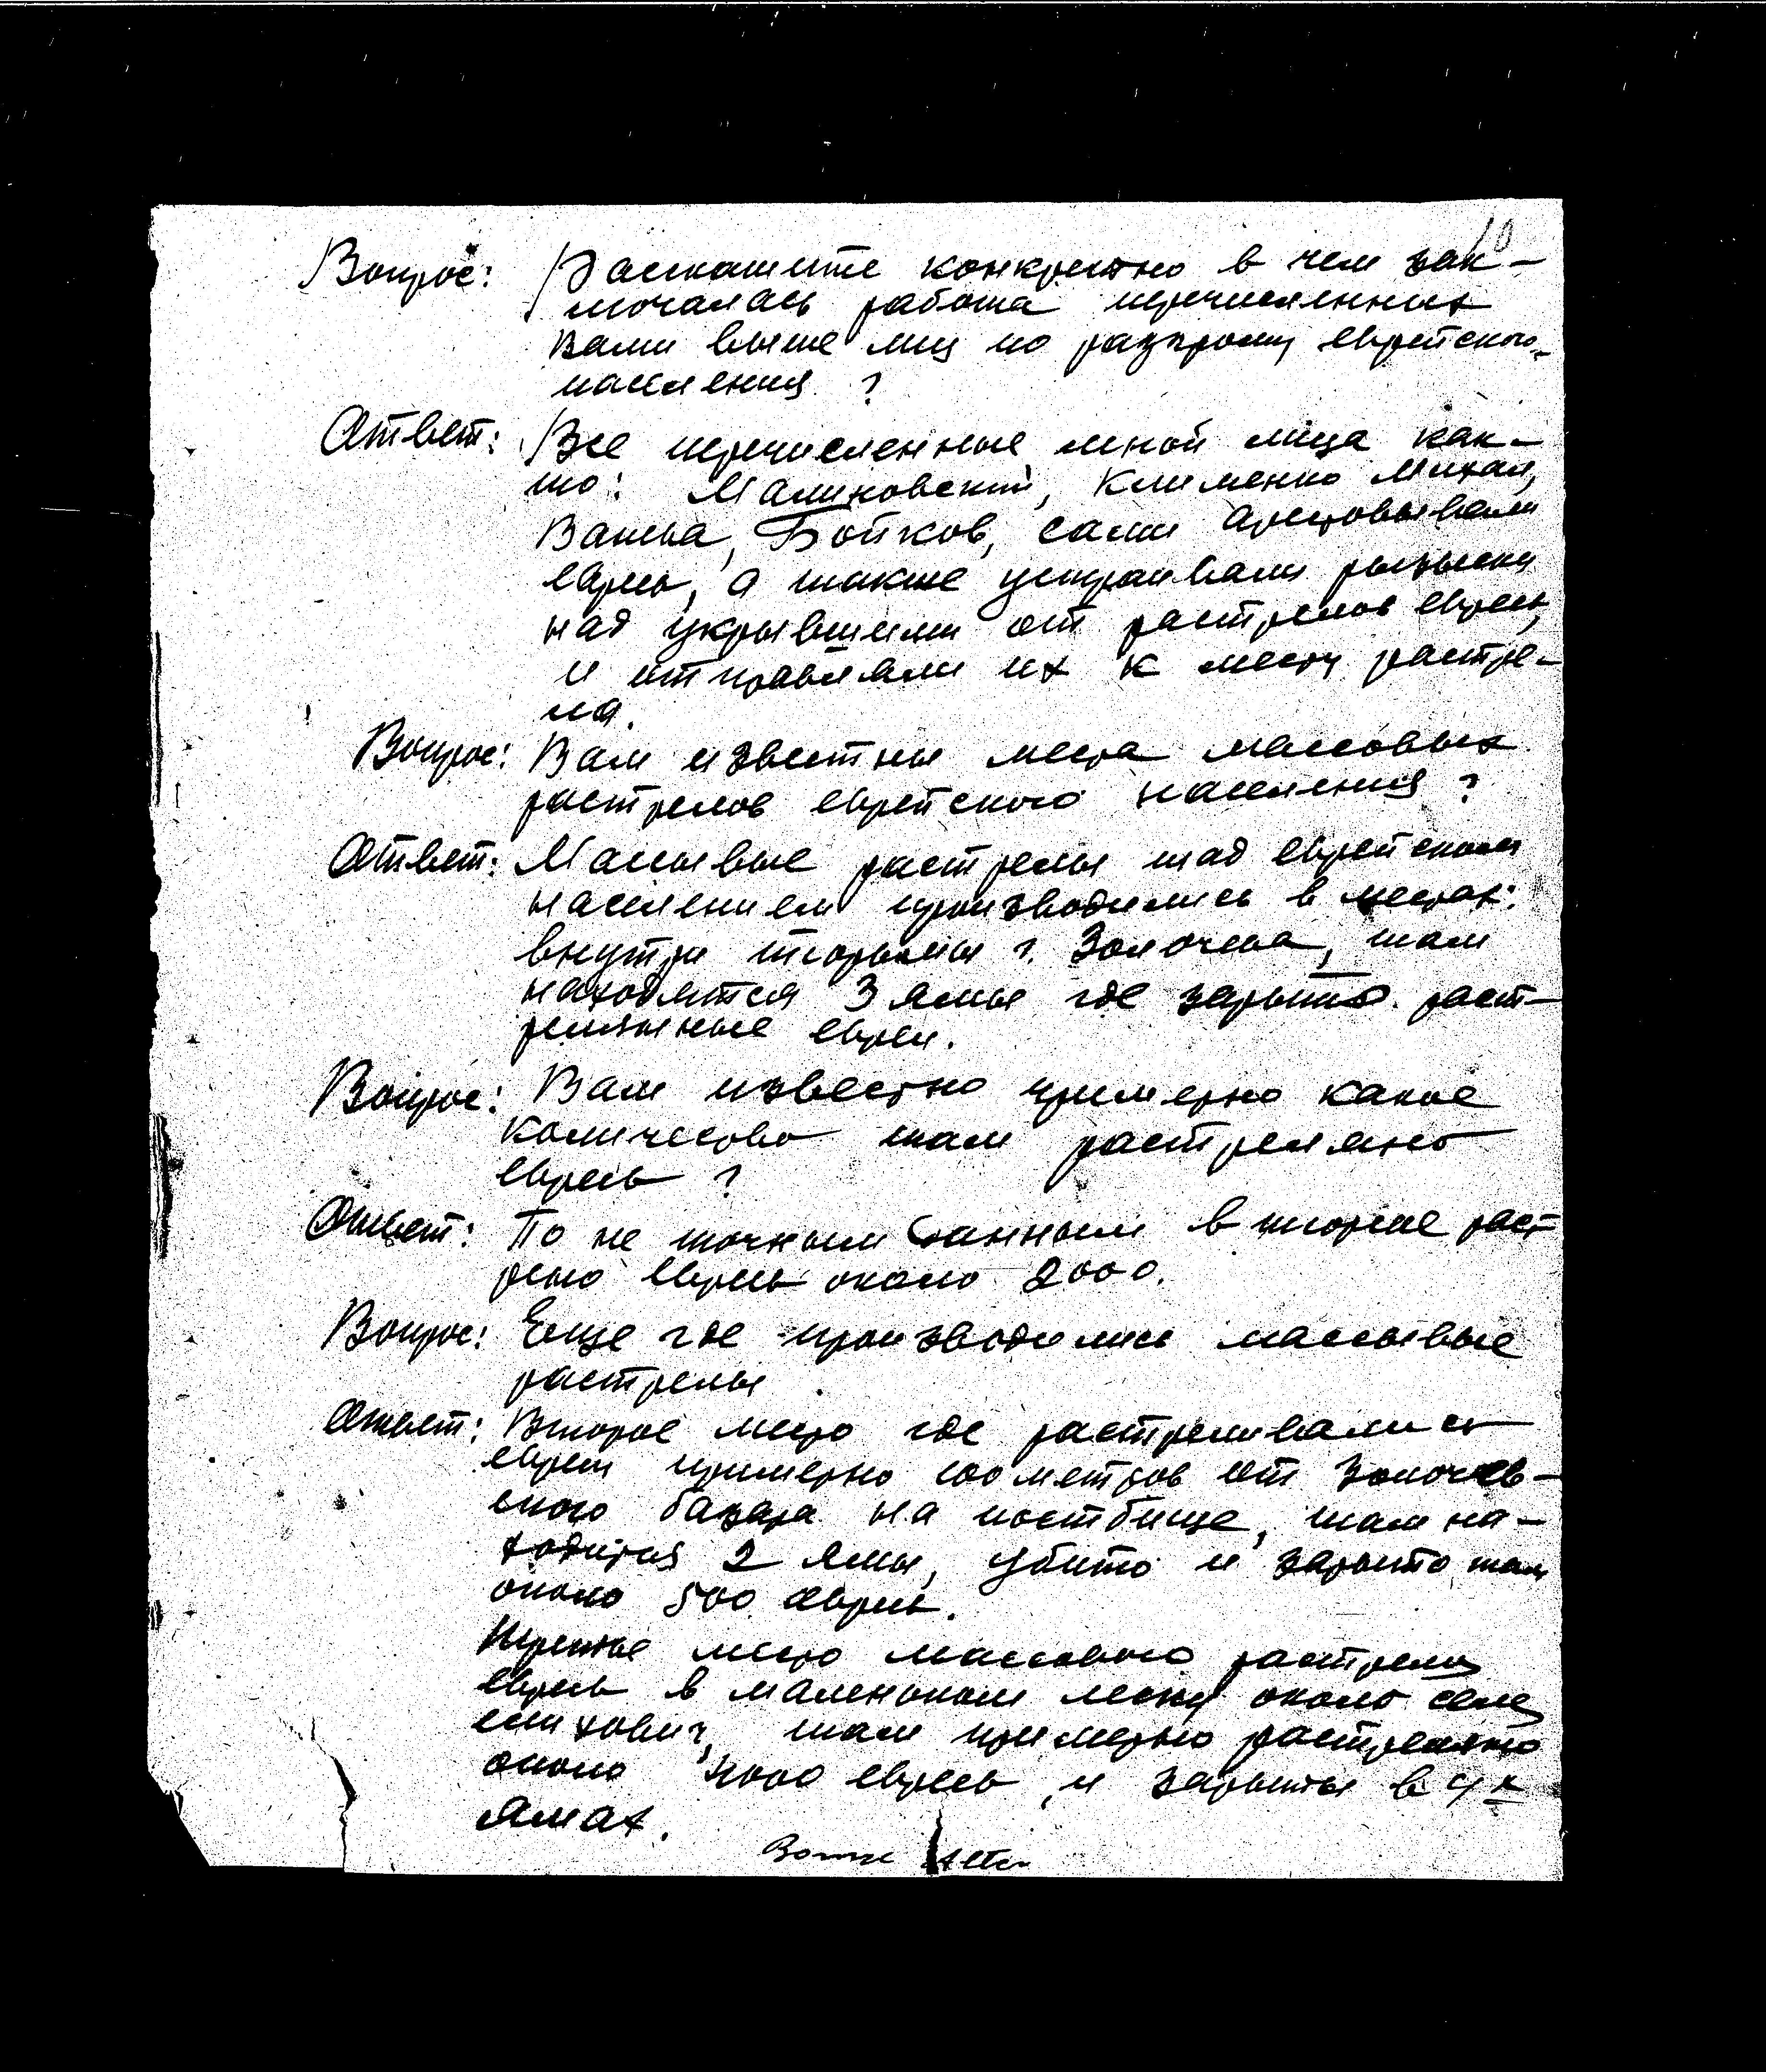 10
Вопрос: Раскажите конкретно в чем зак-
лючалась работа перечисленных
Вами выше лиц по разгрому еврейского
населения ?
Ответ: Все перечисленные мной лица как-
то: Малиновский, Клименко Михал,
Ванька, Бойков, сами арестовывали
евреев, а также устраивали розыски
над укрывшими от растрелов евреев,
и отправляли их к месту растре-
ла.
Вопрос: Вам известны места массовых
растрелов еврейского населения ?
Ответ: Массывые растрелы над еврейским
населением производились в местах:
внутри тюрьмы г. Золочева, там
находятся 3 ямы где зарыто раст-
реляные евреи.
Вопрос: Вам известно примерно какое
количество там растреляно
евреев ?
Ответ: По не точным данным в тюрме раст-
рено евреев около 2000.
Вопрос: Еще где производились массывые
растрелы
Ответ: Второе место где растреливались
евреи примерно 100 метров от Золочев-
ского базара на постбище, там на-
ходится 2 ямы, убито и зарыто там
около 500 евреев.
Третье место массового растрела
евреев в маленьком леску около села
там примерно растреляно
около 4000 евреев, и зарыты в 4х
ямах.
Alter